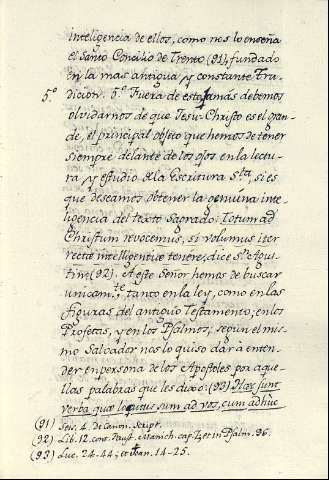 inteligencia de ellos, como nos lo enseña
el Santo Concilio de Trento (91), fundado
en la mas antigua, y constante Tra-
dicion. 5.º Fuera de esto jamás debemos
5.º
olvidarnos de que Jesu-Christo es el gran-
de, el principal objeto que hemos de tener
siempre delante de los ojos en la lectu-
ra, y estudio de la Escritura Sta, si es
que deseamos obtener la genuina inte-
ligencia del texto Sagrado: Totum ad
Christum revocemus, si volumus iter
rectæ intelligentiæ tenere, dice Sn Agus-
tin (92). A este Señor hemos de buscar
unicam.te, tanto en la ley, como en las
figuras del antiguo Testamento, en los
Profetas, y en los Psalmos, segun el mis-
mo Salvador nos lo quiso dar à enten-
der en persona de los Apostoles por aque-
llas palabras que les dixo: (93) Hæc sunt
verba, quæ loquutus sum ad vos, cum adhuc
(91) Seis. 4. de Canon. Script.
(92) Lib. 12. cont. Faust. Manich. cap. 27, et in Psalm. 96.
(93) Luc. 24-44; et Joan. 14-25.